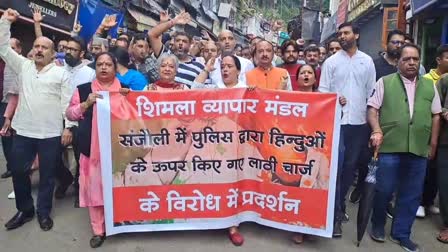 शिमला व्यापार मंडल
संजौली में पुलिस द्वारा हिन्दुओं
के ऊपर किए गए लाठी चार्ज
के विरोध में प्रदर्शन